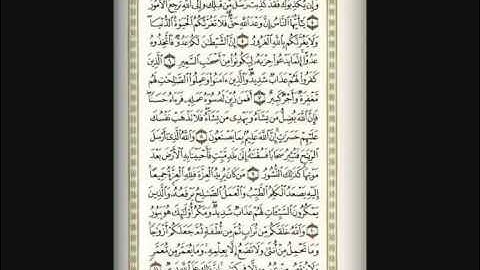 وَإِن يُكَذِّبُوكَ فَقَدْ كُذِّبَتْ رُسُلٌ مِّن قَبْلِكَ وَإِلَى ٱللَّهِ تُرْجَعُ ٱلْأُمُورُ
٤ يَٰٓأَيُّهَا ٱلنَّاسُ إِنَّ وَعْدَ ٱللَّهِ حَقٌّ فَلَا تَغُرَّنَّكُمُ ٱلْحَيَوٰةُ ٱلدُّنْيَا
وَلَا يَغُرَّنَّكُم بِٱللَّهِ ٱلْغَرُورُ ٥ إِنَّ ٱلشَّيْطَٰنَ لَكُمْ عَدُوٌّ فَٱتَّخِذُوهُ
عَدُوًّا إِنَّمَا يَدْعُوا۟ حِزْبَهُۥ لِيَكُونُوا۟ مِنْ أَصْحَٰبِ ٱلسَّعِيرِ ٦ ٱلَّذِينَ
كَفَرُوا۟ لَهُمْ عَذَابٌ شَدِيدٌ وَٱلَّذِينَ ءَامَنُوا۟ وَعَمِلُوا۟ ٱلصَّٰلِحَٰتِ لَهُم
مَّغْفِرَةٌ وَأَجْرٌ كَبِيرٌ ٧ أَفَمَن زُيِّنَ لَهُۥ سُوٓءُ عَمَلِهِۦ فَرَءَاهُ حَسَنًا
فَإِنَّ ٱللَّهَ يُضِلُّ مَن يَشَآءُ وَيَهْدِى مَن يَشَآءُ فَلَا تَذْهَبْ نَفْسُكَ
عَلَيْهِمْ حَسَرَٰتٍ إِنَّ ٱللَّهَ عَلِيمٌۢ بِمَا يَصْنَعُونَ ٨ وَٱللَّهُ ٱلَّذِىٓ أَرْسَلَ
ٱلرِّيَٰحَ فَتُثِيرُ سَحَابًا فَسُقْنَٰهُ إِلَىٰ بَلَدٍ مَّيِّتٍ فَأَحْيَيْنَا بِهِ ٱلْأَرْضَ بَعْدَ
مَوْتِهَا كَذَٰلِكَ ٱلنُّشُورُ ٩ مَن كَانَ يُرِيدُ ٱلْعِزَّةَ فَلِلَّهِ ٱلْعِزَّةُ جَمِيعًا
إِلَيْهِ يَصْعَدُ ٱلْكَلِمُ ٱلطَّيِّبُ وَٱلْعَمَلُ ٱلصَّٰلِحُ يَرْفَعُهُۥ وَٱلَّذِينَ
يَمْكُرُونَ ٱلسَّيِّـَٔاتِ لَهُمْ عَذَابٌ شَدِيدٌ وَمَكْرُ أُو۟لَٰٓئِكَ هُوَ يَبُورُ
١٠ وَٱللَّهُ خَلَقَكُم مِّن تُرَابٍ ثُمَّ مِن نُّطْفَةٍ ثُمَّ جَعَلَكُمْ أَزْوَٰجًا
وَمَا تَحْمِلُ مِنْ أُنثَىٰ وَلَا تَضَعُ إِلَّا بِعِلْمِهِۦ وَمَا يُعَمَّرُ مِن مُّعَمَّرٍ
وَلَا يُنقَصُ مِنْ عُمُرِهِۦٓ إِلَّا فِى كِتَٰبٍ إِنَّ ذَٰلِكَ عَلَى ٱللَّهِ يَسِيرٌ ١١